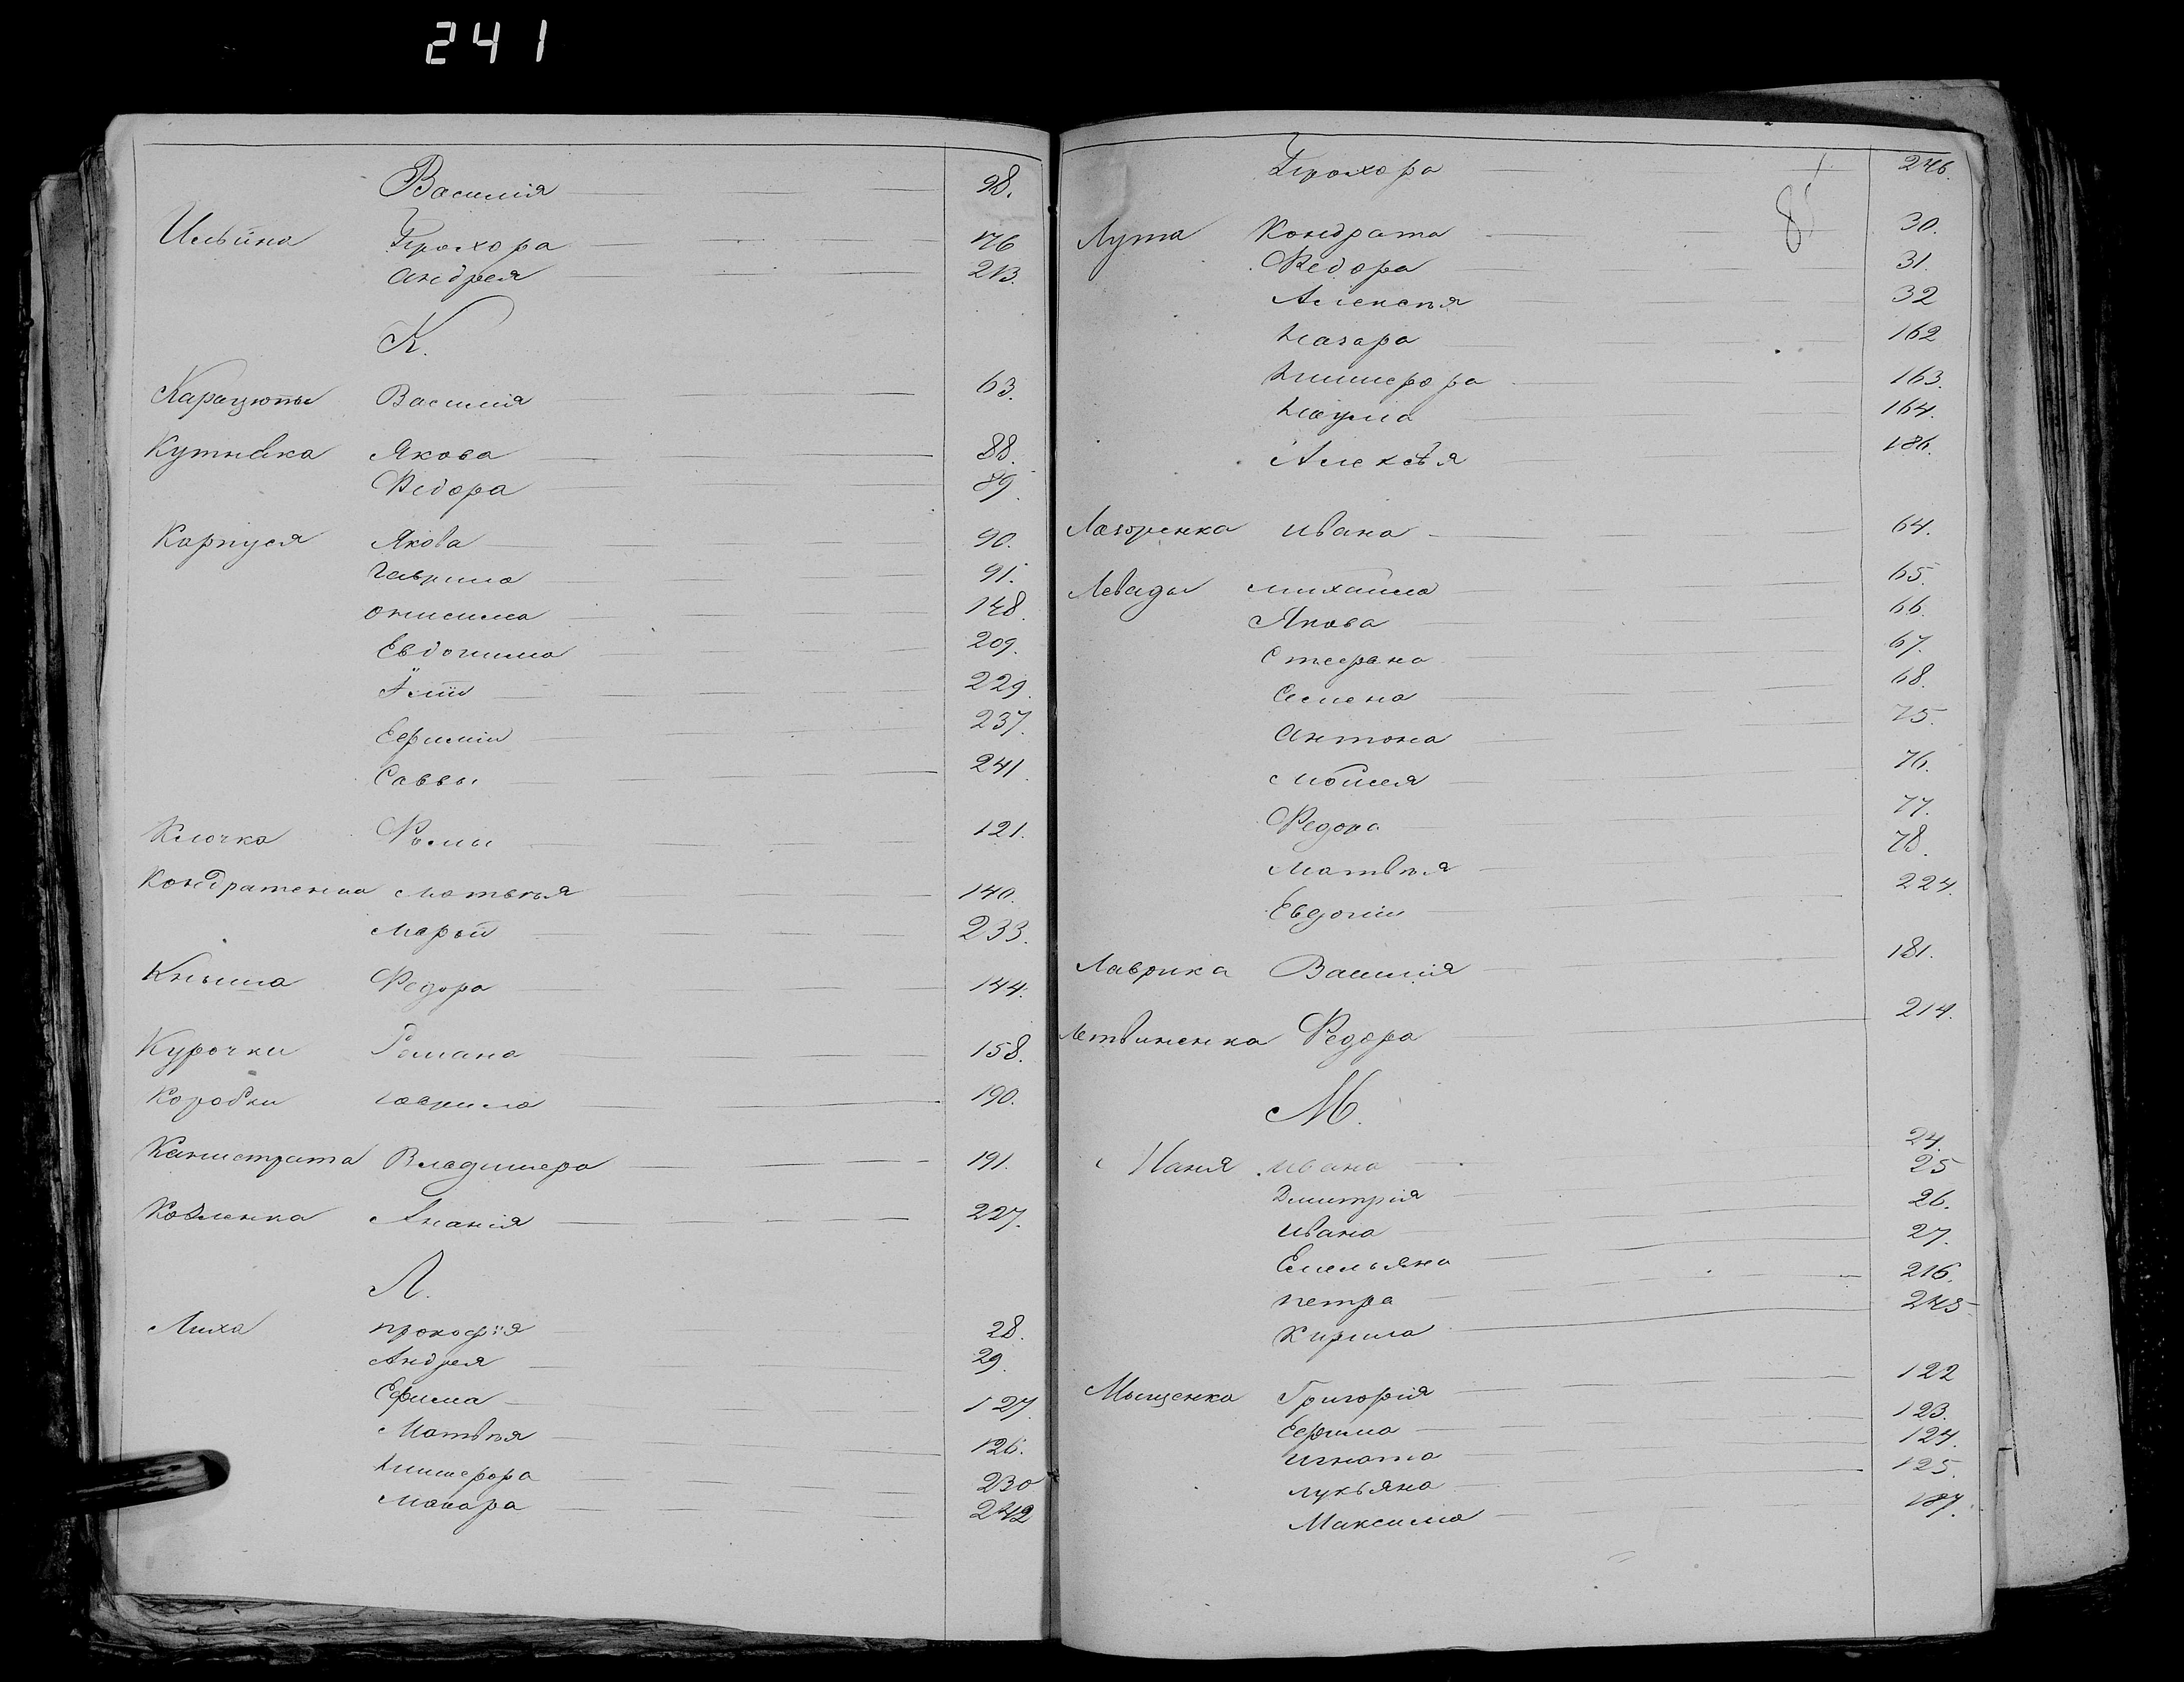 241
Василія 98.
Ильина Прохора 176
Андрея 213.
К.
Карацюпы Василія 63.
Кутняка Якова 88.
Ѳедора 89.
Карпуся Якова 90.
Гаврила 91.
Онисима 148.
Евдокима 209.
229.
Ефиміи 237.
Саввы 241.
Клочка Фомы 121.
Кондратенка Матвѣя 140.
Марѳи 233.
Кныша Федора 144.
Курочки Романа 158.
Коробки Гаврила 190.
Канистрата Владимера 191.
Ананія 227.
Л.
Лиха Прокофія 28.
Андрея 29.
Ефима 127.
Матвѣя 126.
Никифора 230
Макара 242
Прохора 246.
85
Лута Кондрата 30.
Ѳедора 31.
Алексѣя 32
Назара 162
Никифора 163.
Наума 164.
Алексѣя 186.
Лазоренка Ивана 64.
Левады Михаила 65.
Якова 66.
Стефана 67.
Семена 68.
Антона 75.
Мойсея 76.
Федора 77.
Матвѣя 78.
Евдокіи 224.
Лаврика Василія 181.
Летвиненка Федора 214.
М.
Маня Ивана 24.
Дмитрія 25
Ивана 26.
Емельяна 27.
Петра 216.
Кирила 245
Мыщенка Григорія 122
Ефима 123.
Игната 124.
Лукьяна 125.
Максима 187.